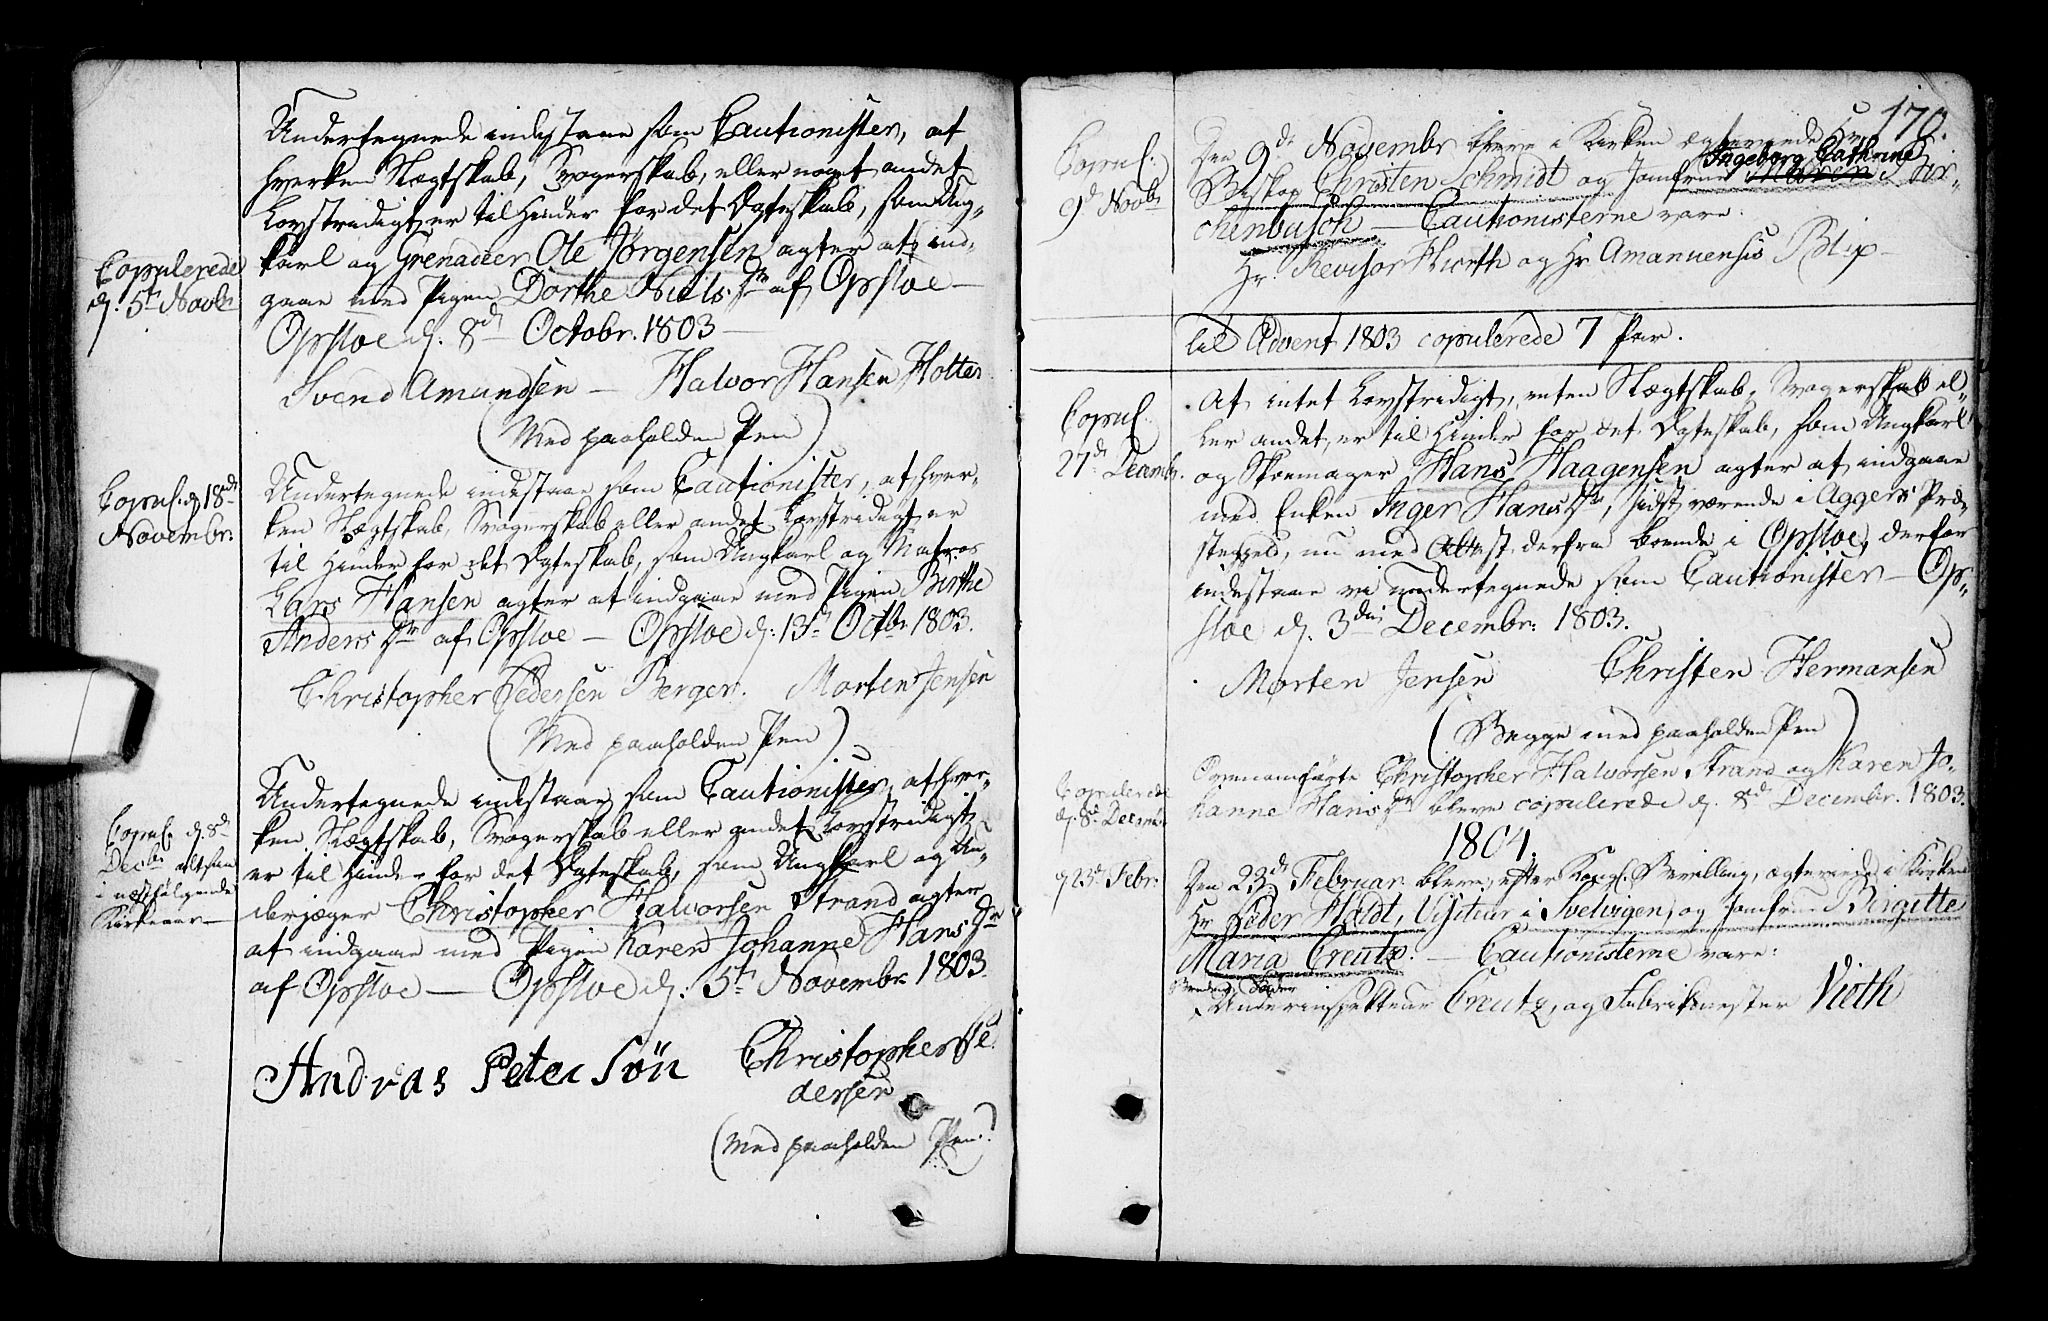 Copulerede
d. 5te Novbr
Undertegnede indestaae som Cautionister, at
hverken Slægtskab, Svogerskab, eller noget andet
Lovstridigt er til Hinder for det Ægteskab, som Ung-
karl og Grenadier Ole Jørgensen agter at ind-
gaae med Pigen Dorthe Niels Dtr af Opsloe —
Opsloe d. 8de Octobr. 1803 —
Svend Amundsen — Halvor Hansen Holter
(Med paaholden Pen)
Copul. d. 18de
Novembr.
Undertegnede indestaae som Cautionister, at hver-
ken Slægtskab, Svogerskab eller andet Lovstridigt er
til Hinder for det Ægteskab, som Ungkarl og Matros
Lars Hansen agter at indgaae med Pigen Birthe
Anders Dtr af Opsloe — Opsloe d. 13de Octbr 1803.
Christopher Pedersen Berger. Morten Jensen
(Med paaholden Pen)
Copul. d. 8de
Decbr altsaa
i næstfølgende
Kirkeaar —
Undertegnede indestaae som Cautionister, at hver-
ken Slægtskab, Svogerskab eller andet Lovstridigt
er til Hinder for det Ægteskab, som Ungkarl og Un-
derjæger Christopher Halvorsen Strand agter
at indgaae med Pigen Karen Johanne Hans Dtr
af Opsloe — Opsloe d. 5te Novembr. 1803.
Andreas Peter Søn Christopher Pe-
dersen
(Med paaholden Pen)
170.
Copul.
9de Novbr
Den 9de Novembr bleve i Kirken ægteviede Hr
Ingeborg Cathrine
Biskop Christen Schmidt og Jomfrue Maren Stix-
chenbusch — Cautionisterne vare:
Hr Revisor Hiorth og Hr Amanuensis Blix —
til Advent 1803 copulerede 7 Par.
Copul.
27de Decembr.
At intet Lovstridigt, enten Slægtskab, Svogerskab el-
ler andet, er til Hinder for det Ægteskab, som Ungkarl
og Skoemager Hans Haagensen agter at indgaae
med Enken Inger Hans Dtr, sidst værende i Aggers Præ-
stegield, nu med Attest derfra boende i Opsloe, derfor
indestaae vi undertegnede som Cautionister — Op-
sloe d. 3die Decembr. 1803.
Morten Jensen Christen Hermansen
(Begge med paaholden Pen)
Copulerede
d. 8de Decembr
Ovenanførte Christopher Halvorsen Strand og Karen Jo-
hanne Hans Dtr bleve copulerede d. 8de Decembr. 1803.
1804.
d 23de Febr.
Den 23de Februar bleve, efter Kongl. Bevilling, ægteviede i Kirken
Hr Peder Holdt, Visiteur i Svelvigen, og Jomfrue Birgitte
Maria Creutz. — Cautionisterne vare:
Brudens Fader
Underinspecteur Creutz, og Fabrikmester Vieth